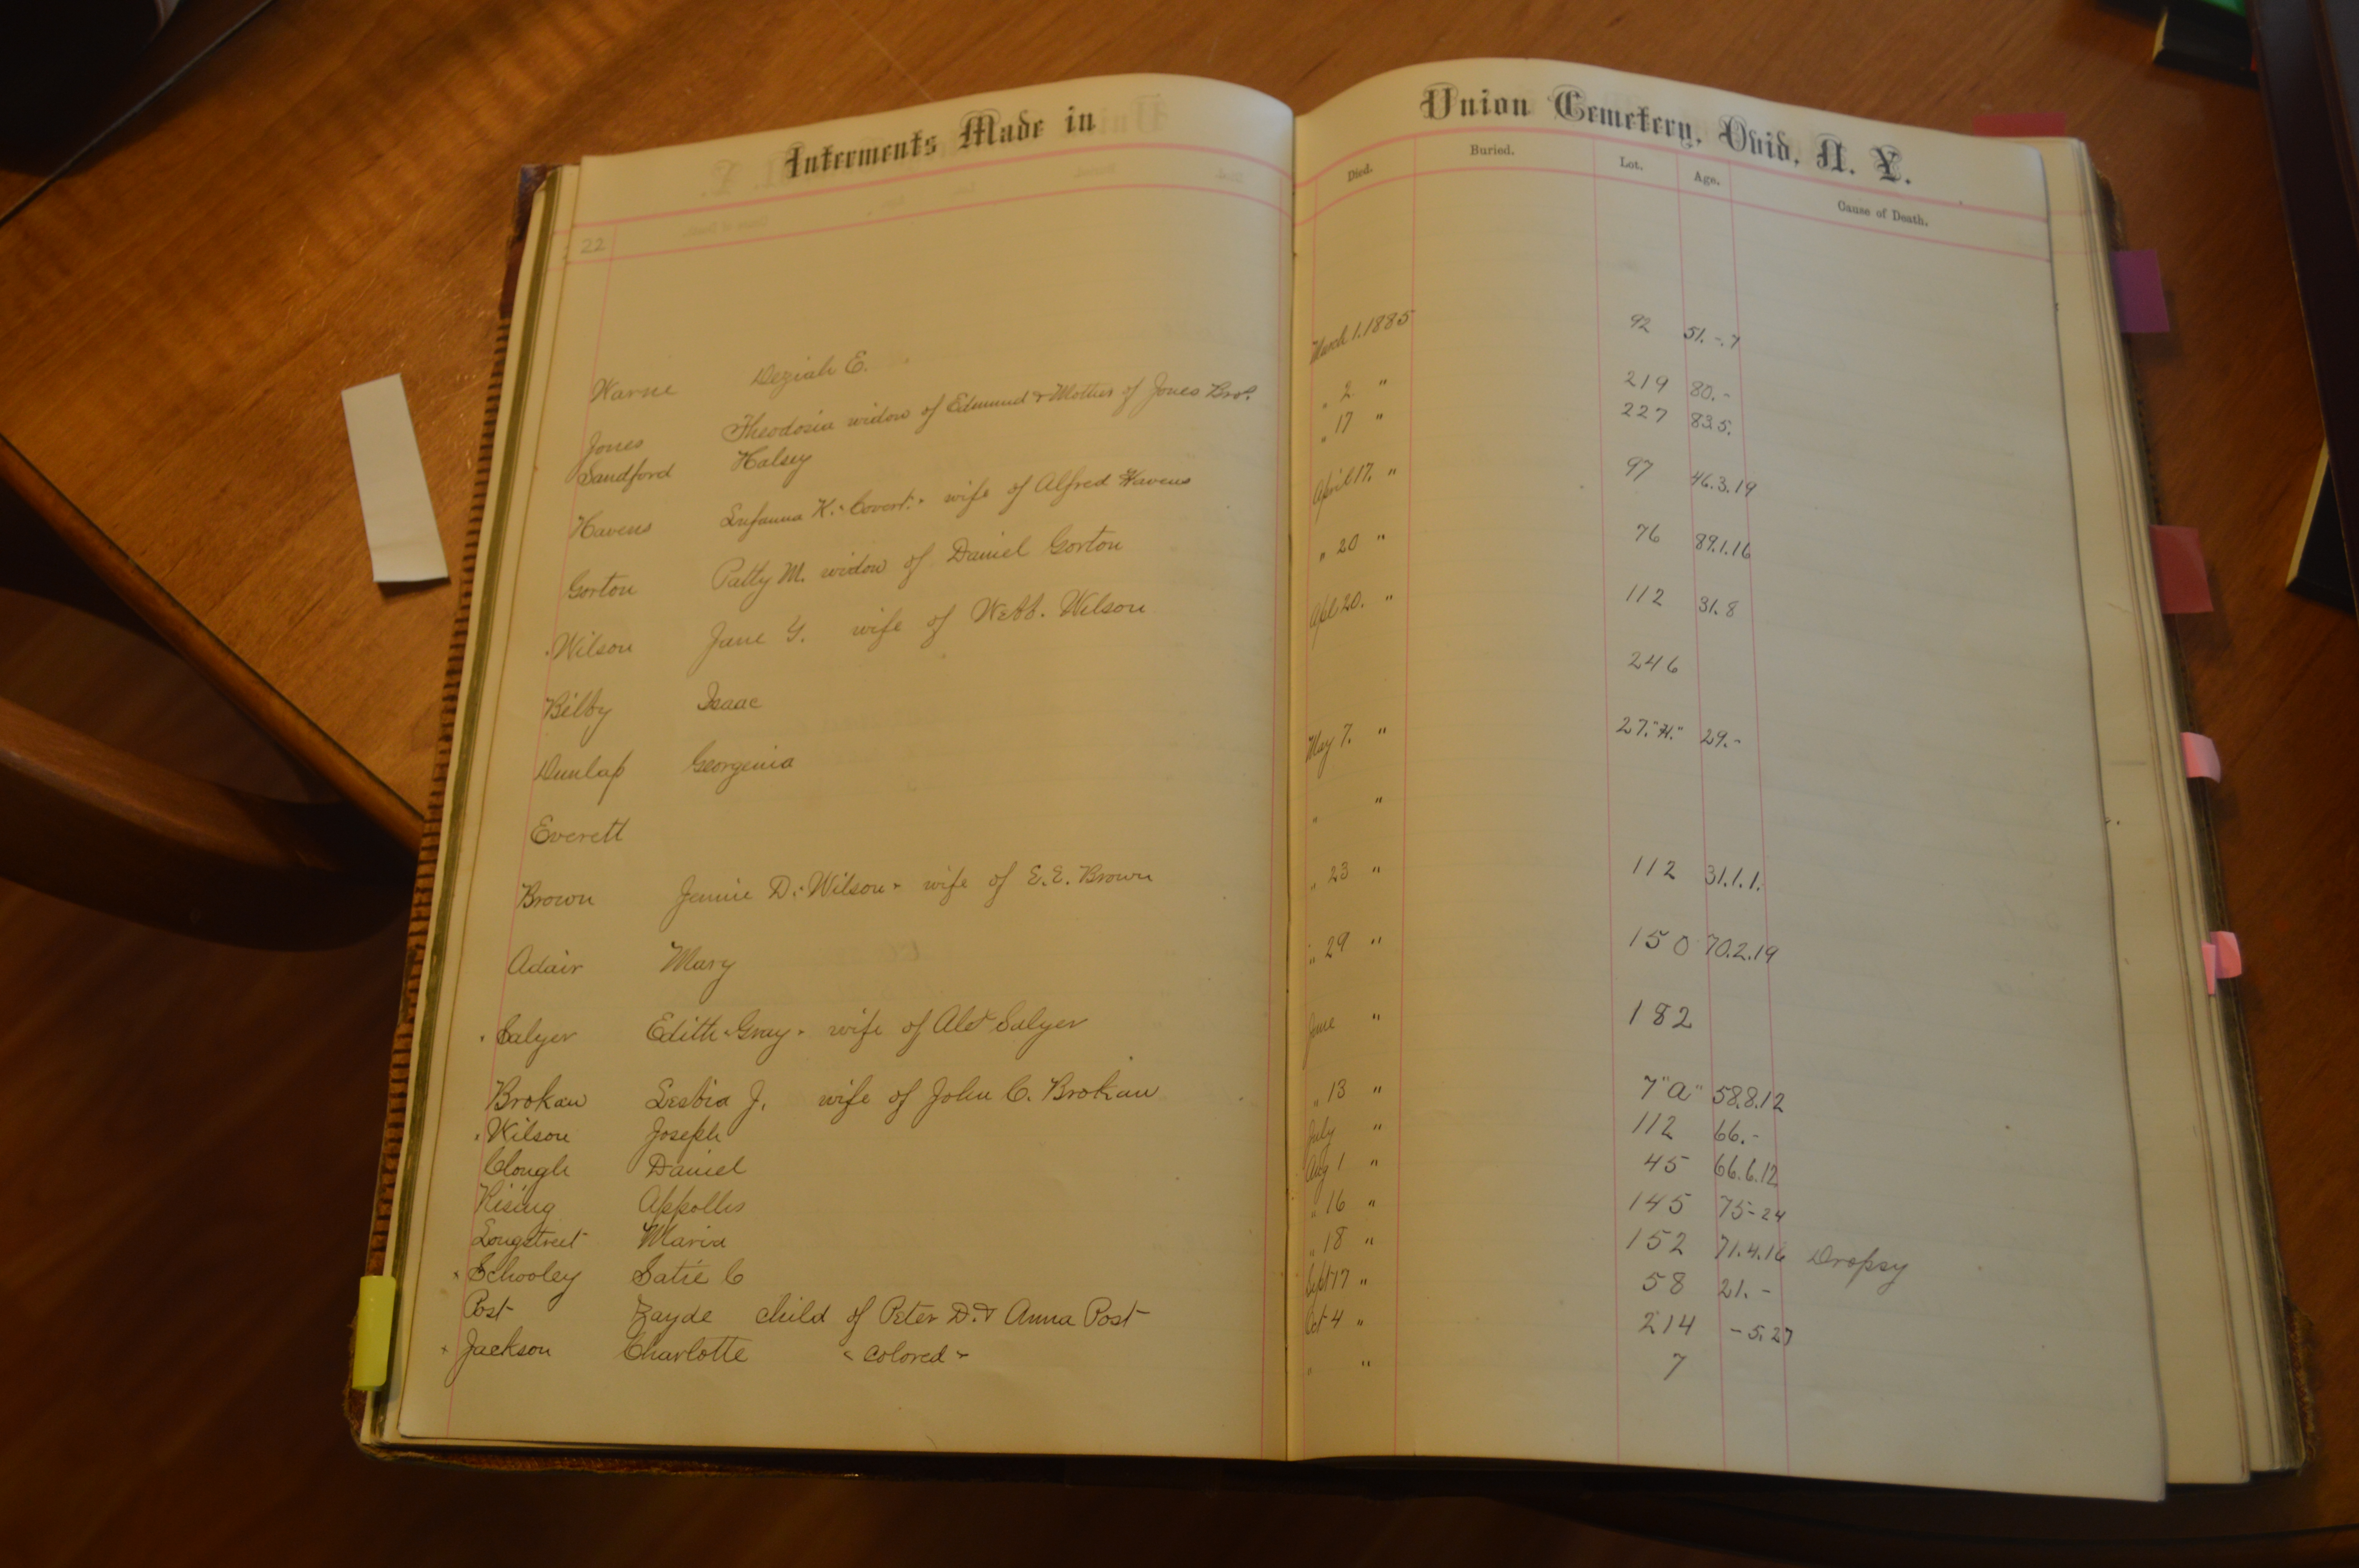 Interments Made in Union Cemetery, Ovid, N. Y.
Died. Buried. Lot. Age. Cause of Death.
22
Warne Deziah E. March 1. 1885 92 51.-.7
Jones Theodosia widow of Edmund & Mother of Jones Bro's. " 2 " 219 80.-
Sandford Halsey " 17 " 227 83.5.
Havens K. "Covert." wife of Alfred Havens April 17. " 97 46.3.19
Gorton Patty M. widow of Daniel Gorton " 20 " 76 89.1.16
Wilson Jane Y. wife of Webb. Wilson Apl 20. " 112 31.8
Bilby Isaac 246
Dunlap Georgenia May 7. " 27."H." 29.-
Everett " "
Brown Jennie D. "Wilson" wife of E.E. Brown " 23 " 112 31.1.1.
Adair Mary " 29 " 150 70.2.19
Salyer Edith "Gray" wife of Alex Salyer June " 182
Brokaw Lesbia J. wife of John C. Brokaw " 13 " 7 "a" 58.8.12
Wilson Joseph July " 112 66.-
Clough Daniel Aug 1 " 45 66.6.12
Rising Appollis " 16 " 145 75-24
Longstreet Maria " 18 " 152 71.4.16 Dropsy
x Schooley Satie C Sept 17 " 58 21.-
Post Zayde child of Peter D. & Anna Post Oct 4 " 214 -5.27
x Jackson Charlotte "colored" " " 7